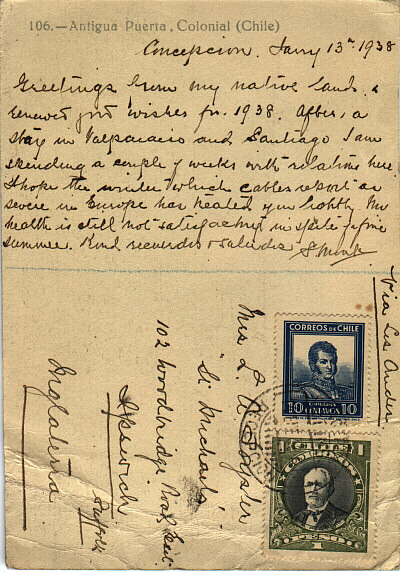 106.—Antigua Puerta, Colonial (Chile)
Concepcion. Jany 13th 1938
Greetings from my native land, &
renewed good wishes for 1938. After, a
stay in Valparaiso and Santiago I am
spending a couple of weeks with relatives here.
I hope the winter which cables report as
severe in Europe has treated you lightly. My
health is still not satisfactory in spite of fine
summer. Kind recuerdos & saludos
Via Los Andes
Mrs L.
"St Michaels"
102 Woodbridge Road
Ipswich
Suffolk
Inglaterra
CORREOS DE CHILE
10 CENTAVOS 10
1 CHILE 1
1